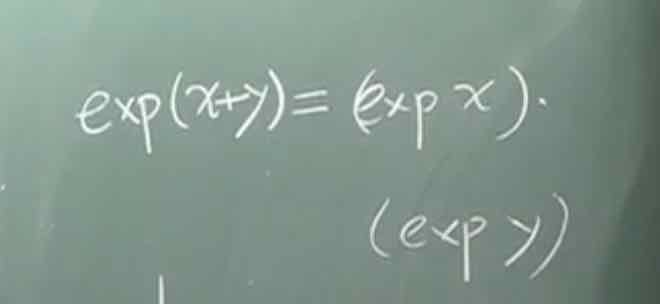 exp(x+y)=(exp x)·
(exp y)